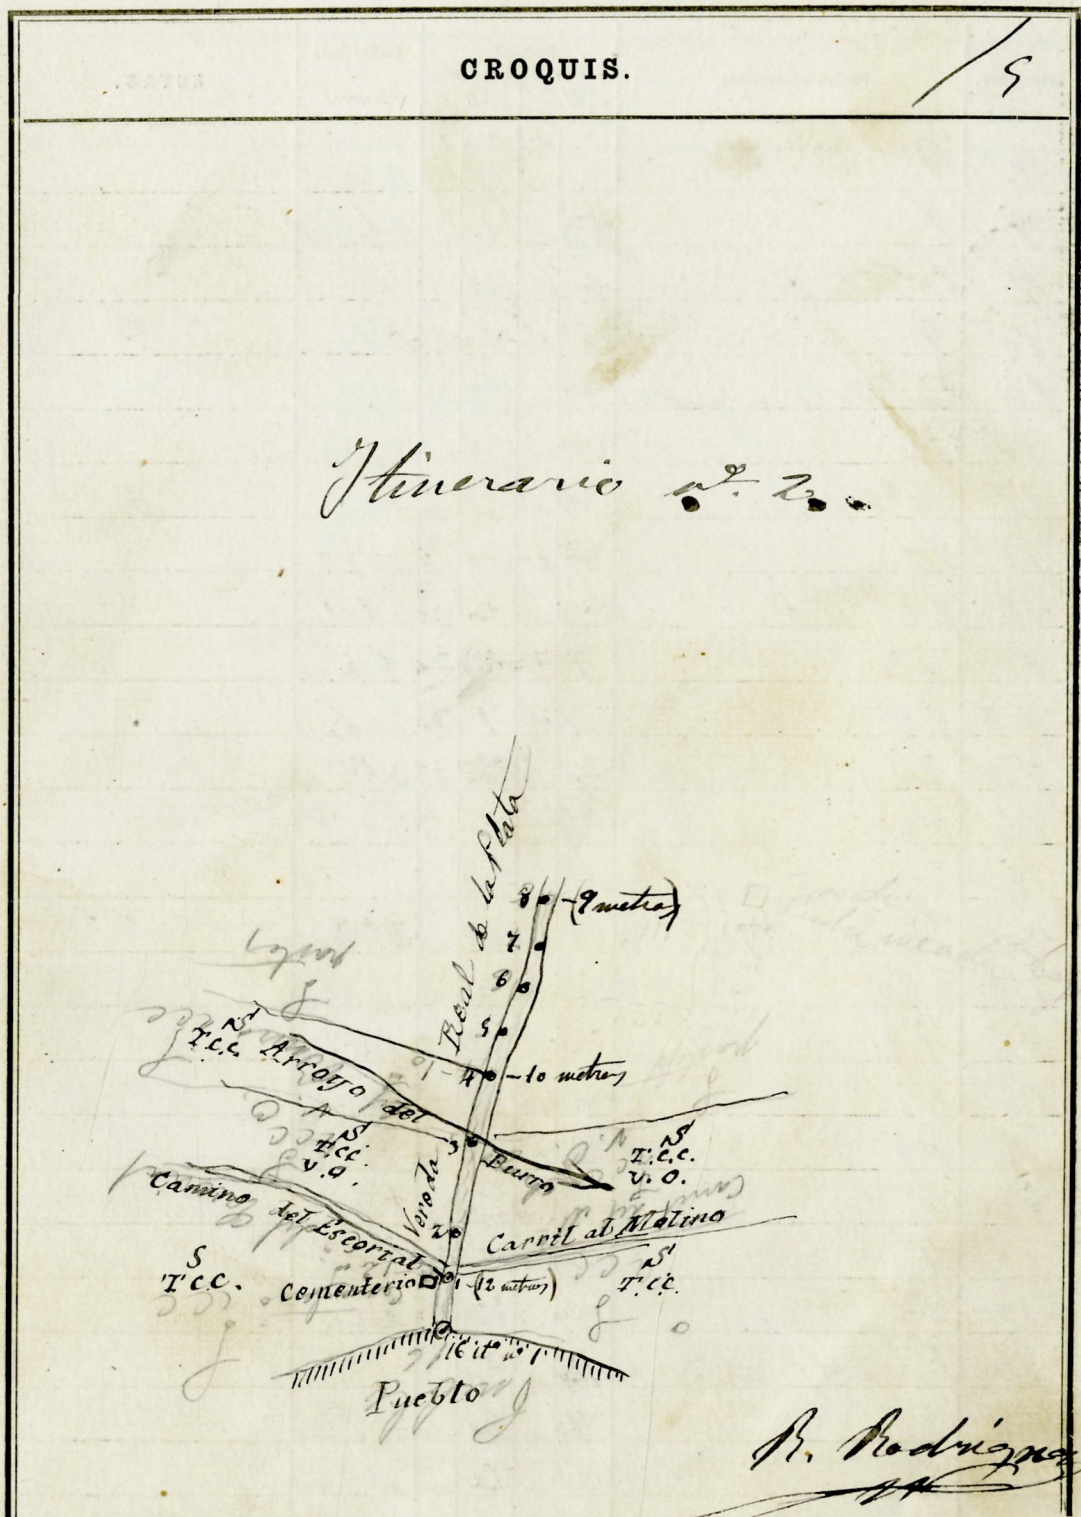 CROQUIS.
/5
Itinerario nº. 2.
Real de la Plata
8 -(9 metros)
7
6
5
S
T.c.c.
Arroyo del
4 -10 metros
3
Burro
S
T.c.c.
v.o.
S
T.c.c.
v.o.
Vereda
Camino
del Escorial
2
Carril al Molino
S
T.c.c.
Cementerio
1 -(12 metros)
S
T.c.c.
16 itº nº 1
Pueblo
R. Rodriguez